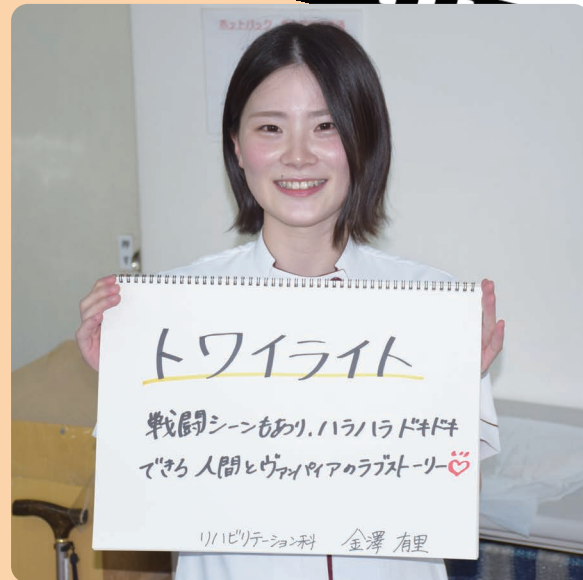 トワイライト
戦闘シーンもあり、ハラハラドキドキ
できる 人間とヴァンパイアのラブストーリー♡
リハビリテーション科 金澤 有里